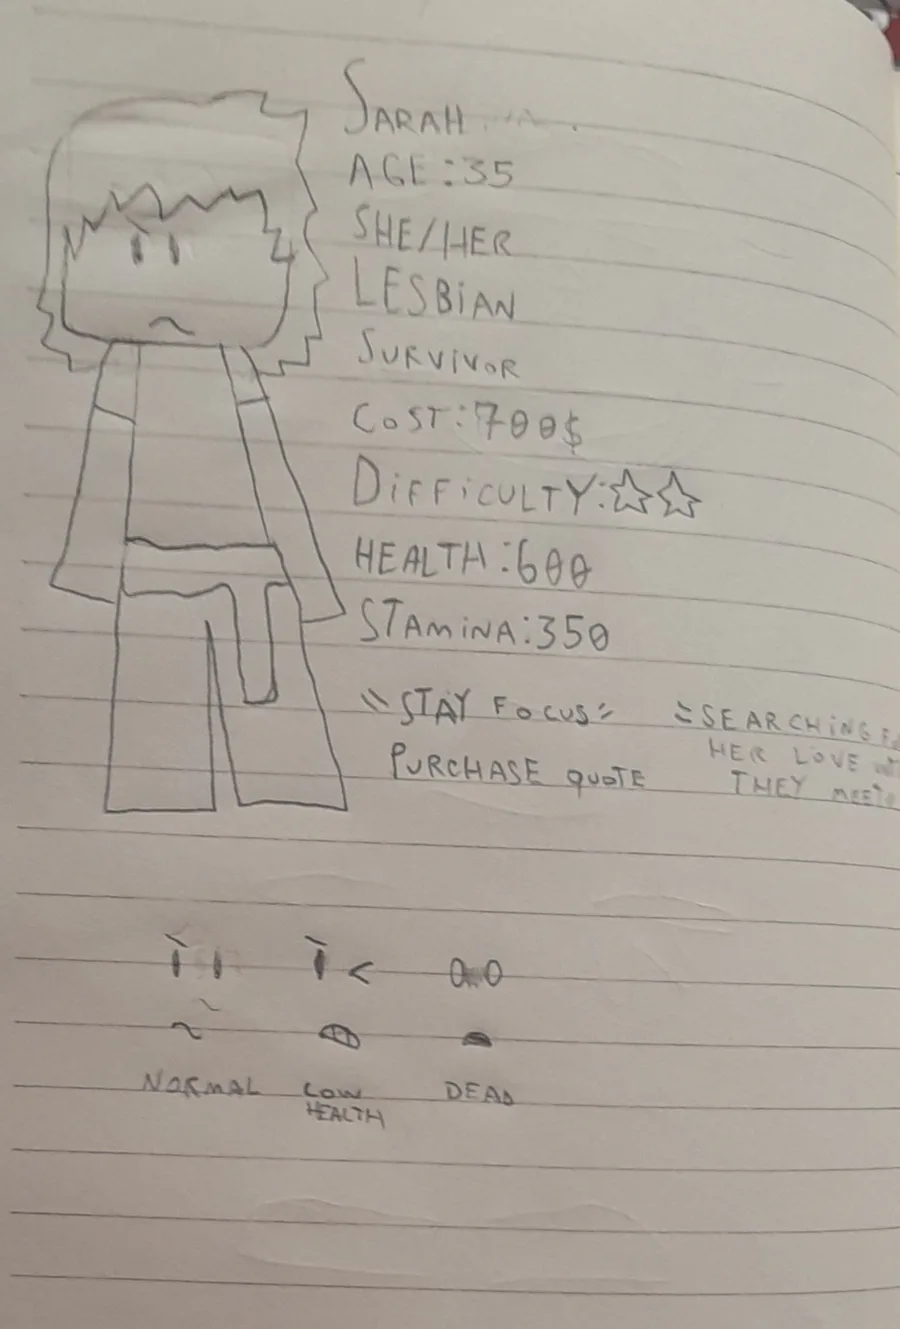 SARAH
AGE:35
SHE/HER
LESBiAN
SURViVOR
COST:700$
DiFFiCULTY:☆☆
HEALTH:600
STAMiNA:350
"STAY FOCUS"
PURCHASE QUOTE
=SEARCHiNG
HER LOVE
THEY
NORMAL
LOW
HEALTH
DEAD